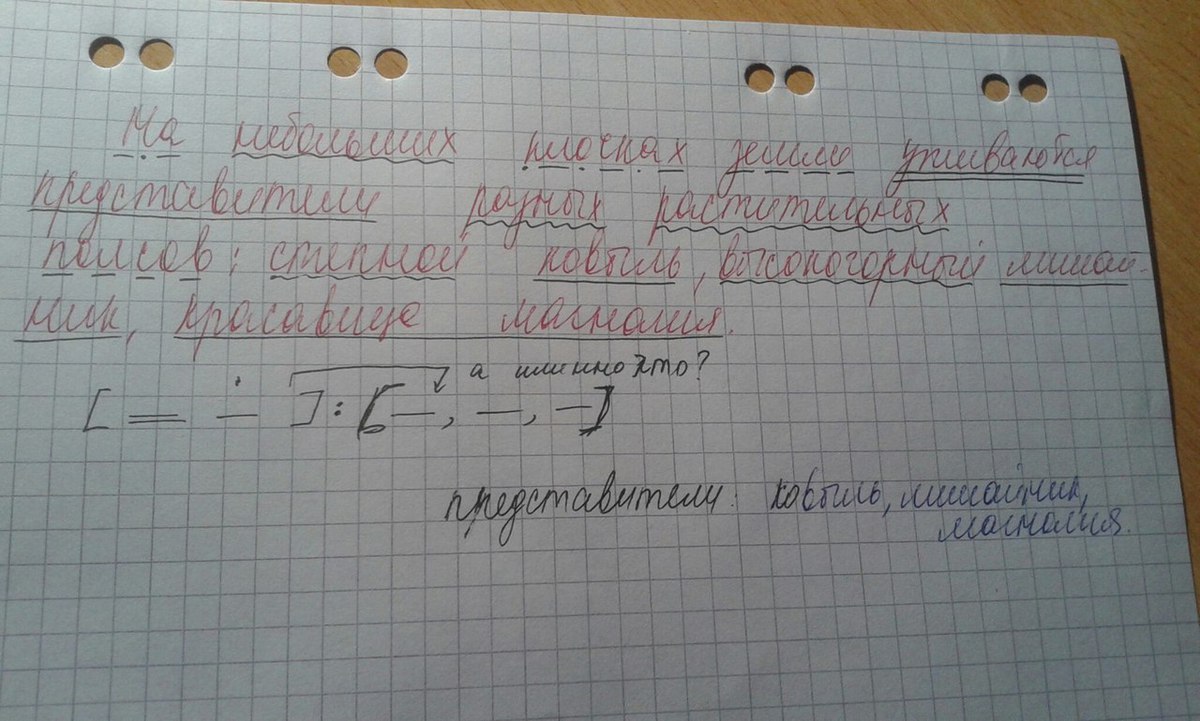 На небольших клочках земли уживаются
представители разных растительных
поясов: степной ковыль, высокогорный лишай-
ник, красавица магнолия.
а именно кто?
[ = — ] : [ —, —, — ]
представители: ковыль, лишайник,
магнолия.